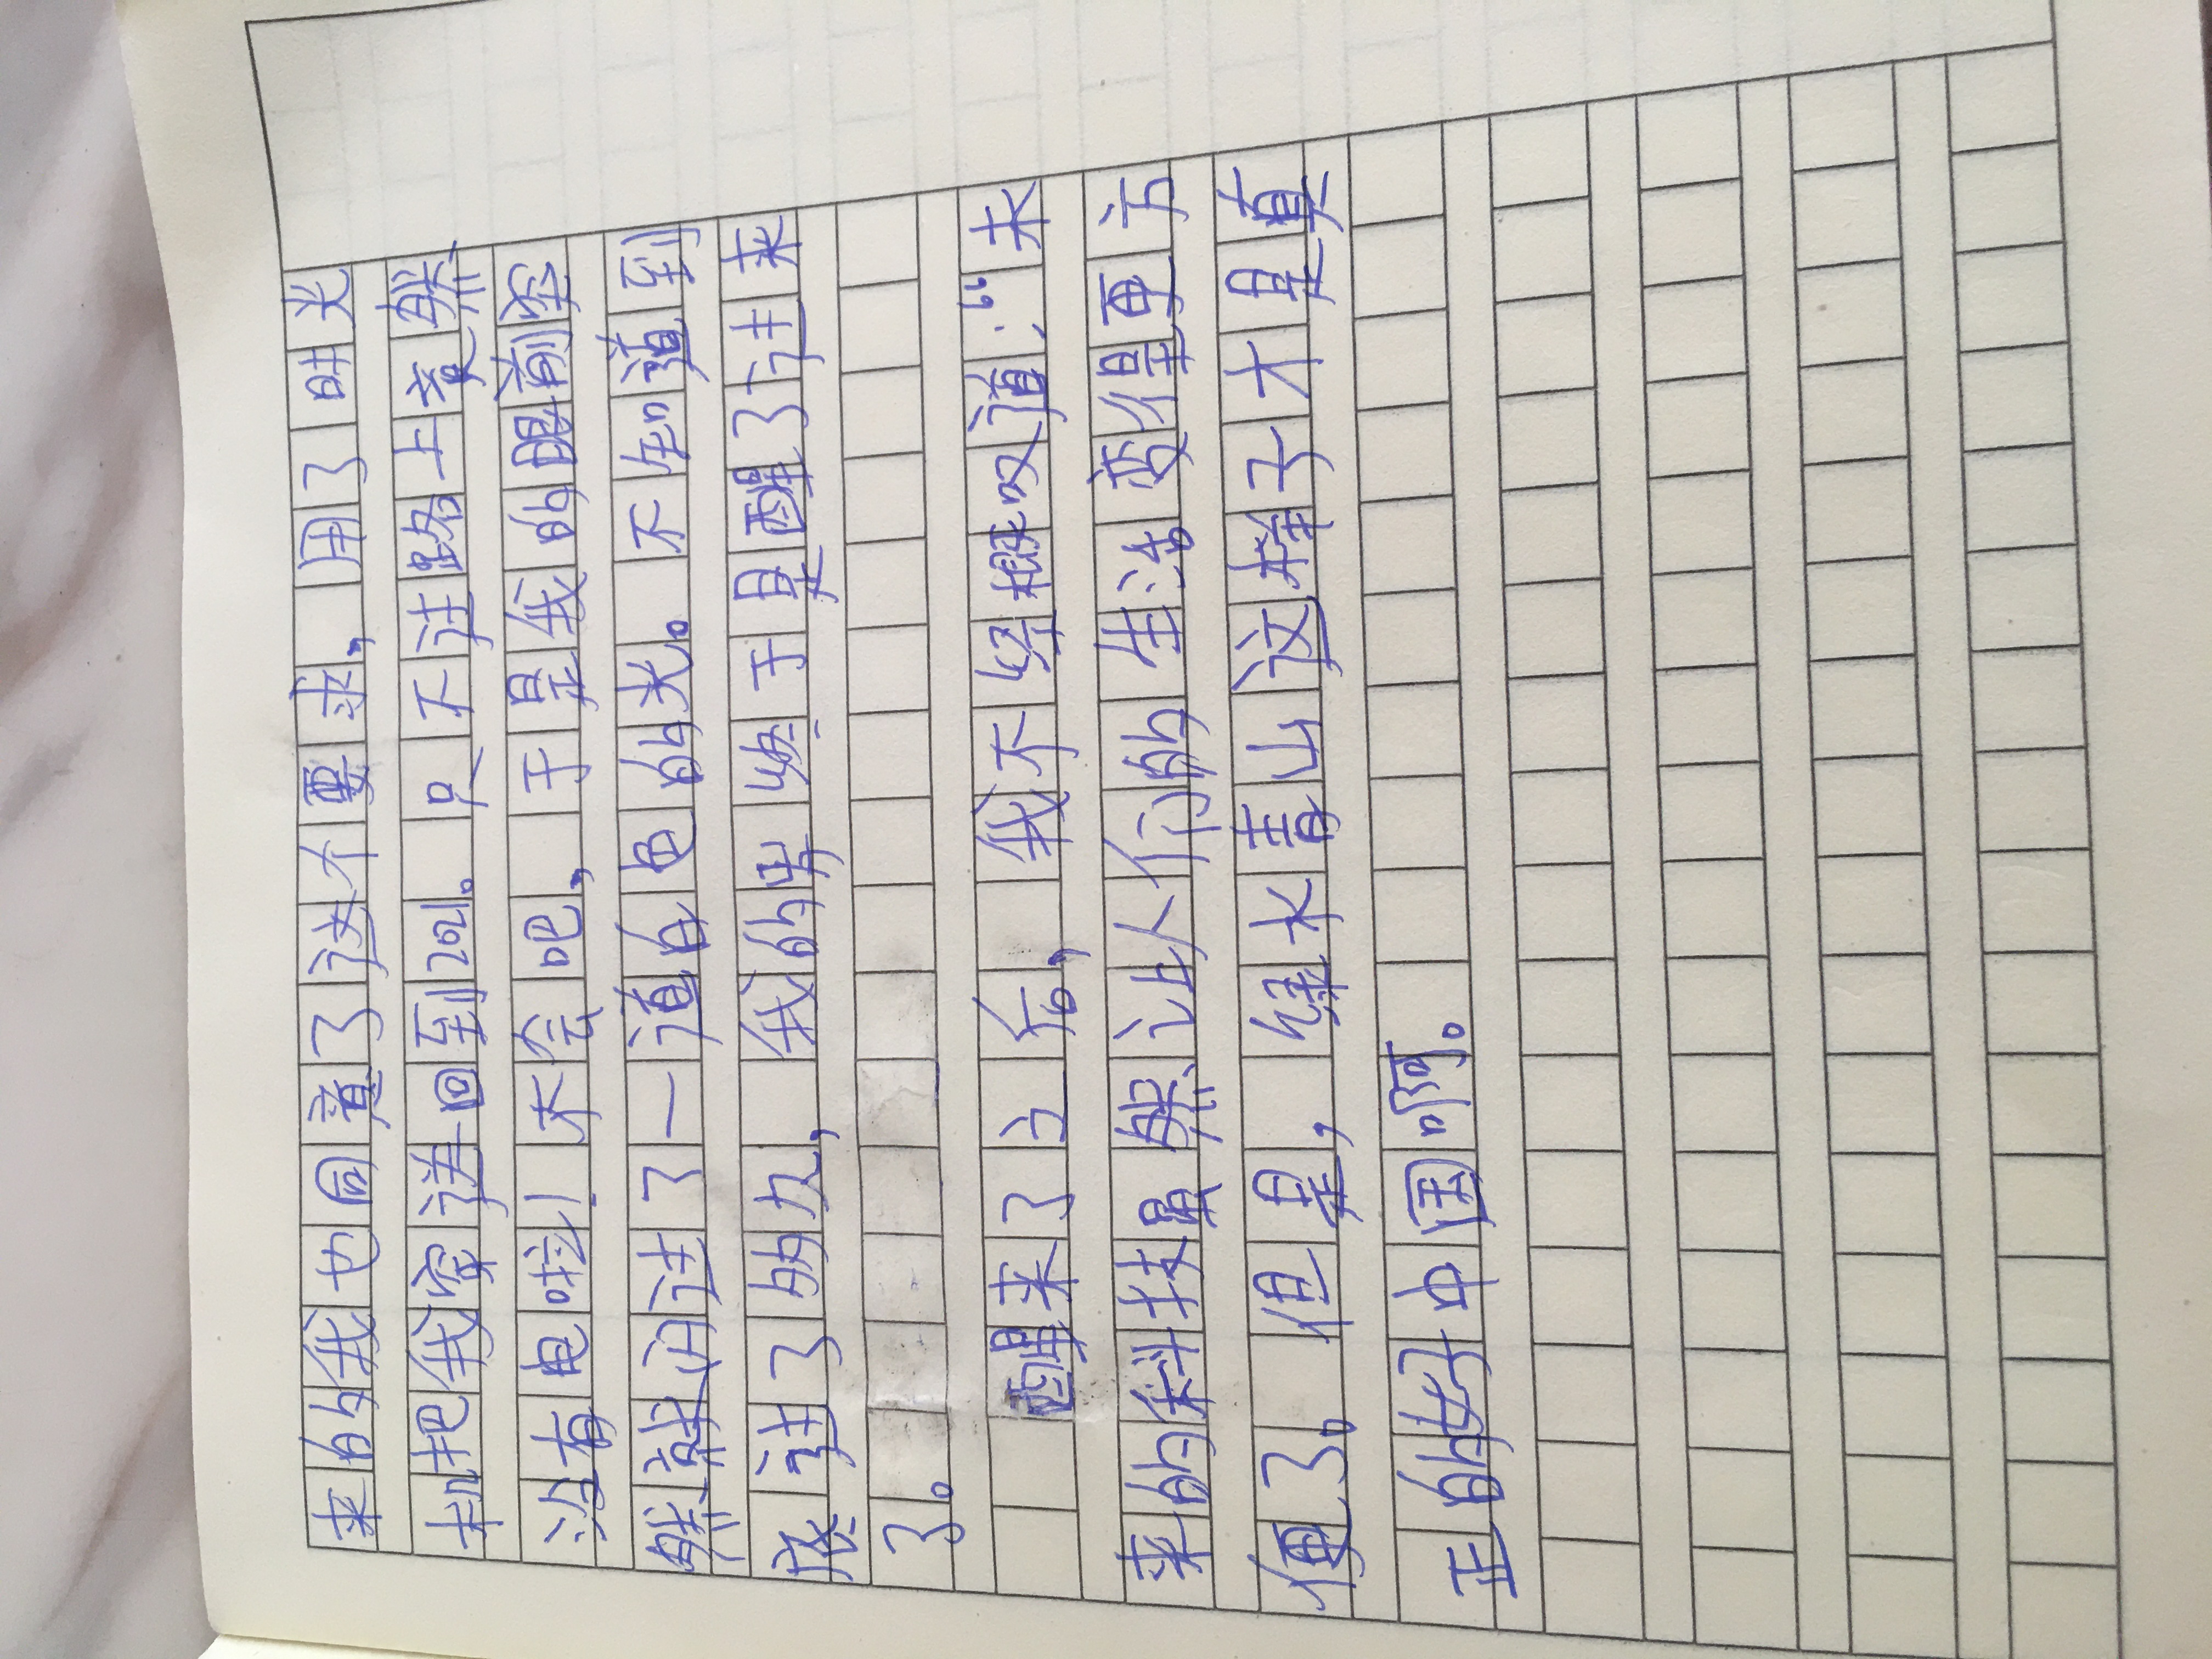 来的我也同意了这个要求，用了时光
机把我穿送回到2021。只不过路上竟然
没有电啦！不会吧，于是我的眼前突
然就闪过了一道白色的光。不知道到
底过了多久，我的终于是醒了过来
了。
醒来了之后，我不经概叹道：“未
来的科技虽然让人们的生活变得更方
便了。但是，绿水青山这样子才是真
正的好中国啊。